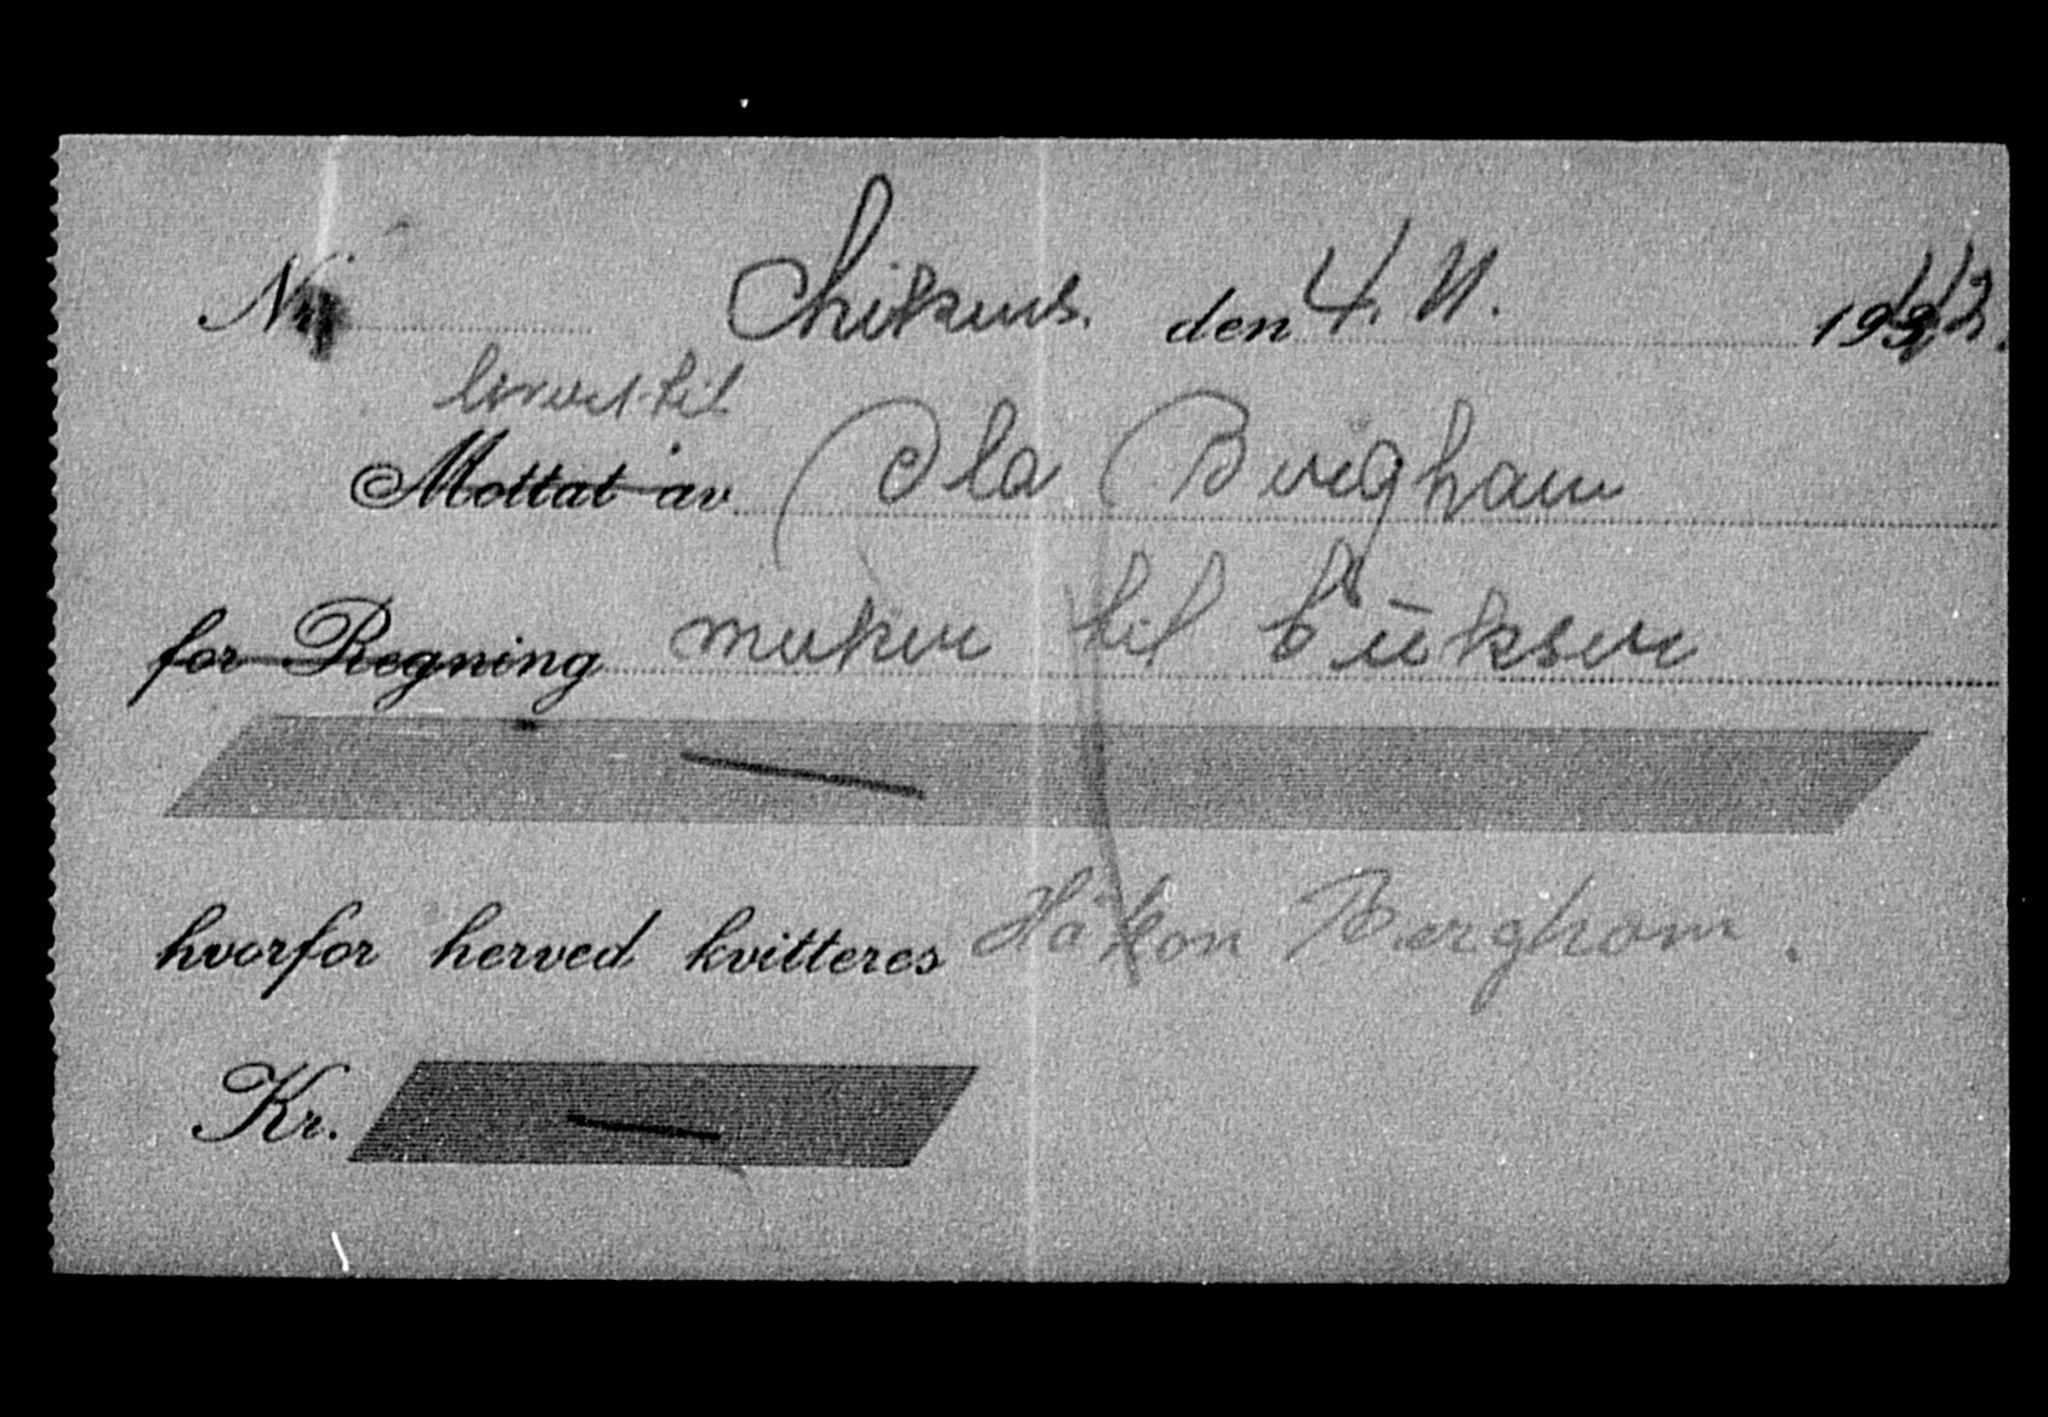 Nr. den 4. 11. 1942.
levert til
Mottat av Ola Bergham
for Regning merker til bukser
hvorfor herved kvitteres Håkon Berghom.
Kr.